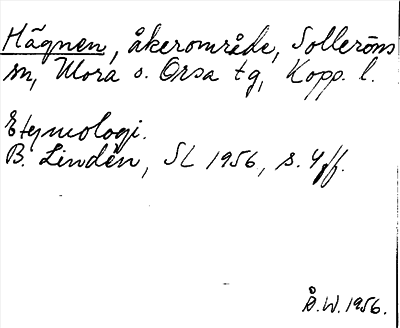 Hägnen, åkerområde, Solleröns
sn, Mora o. Orsa tg, Kopp. l.
Etymologi.
B. Lindén, SL 1956, s. 4ff.
Å.W. 1956.